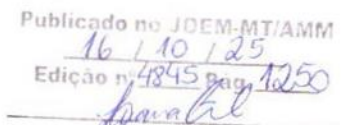 Publicado no JOEM-MT/AMM
16 / 10 / 25
Edição nº 4845 Pag. 1250